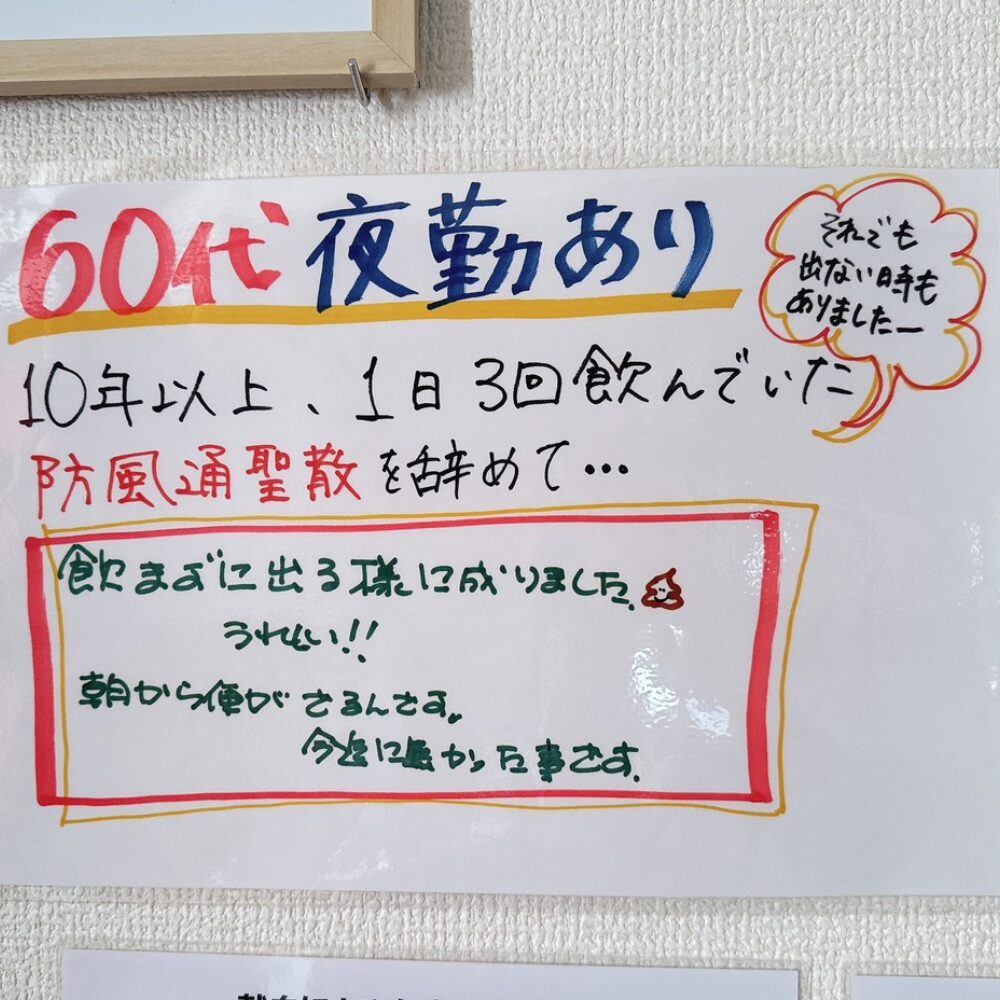 60代 夜勤あり
それでも
出ない時も
ありましたー
10年以上、1日3回飲んでいた
防風通聖散を辞めて…
飲まずに出る様に成りました。
うれしい!!
朝から便がさるんです。
今迄に無かった事です。